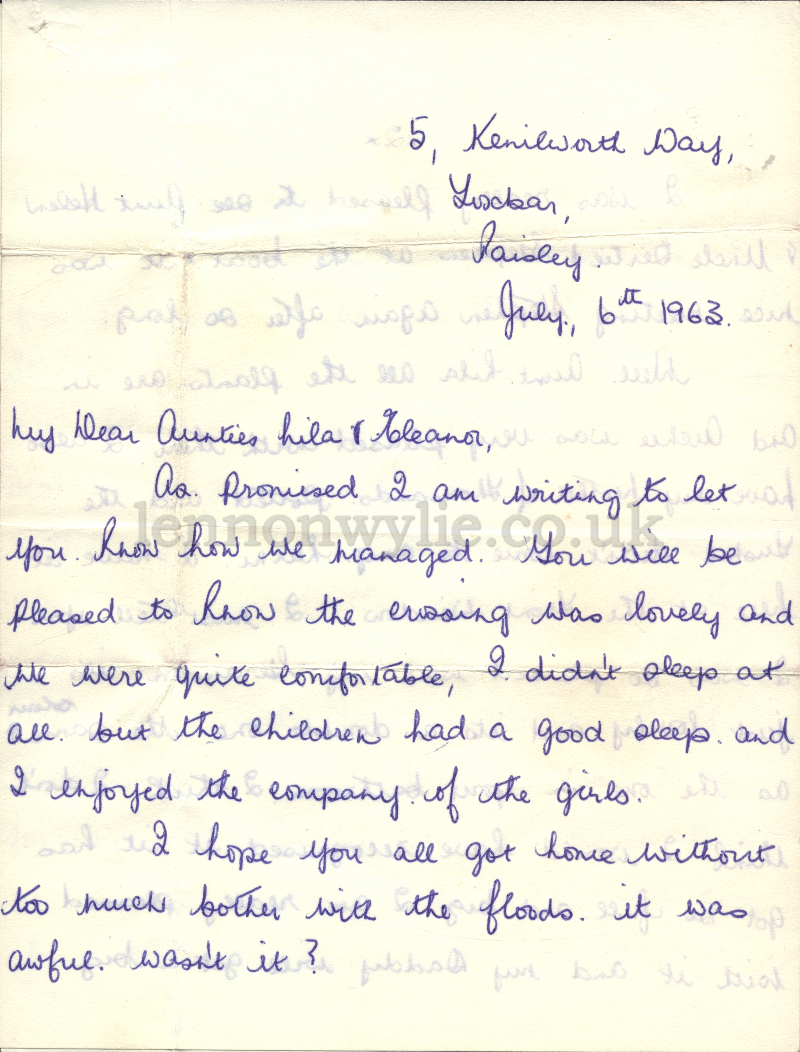 5, Kenilworth Way,
Foxbar,
Paisley.
July, 6th 1963.
My Dear Aunties Lila & Eleanor,
As. promised I am writing to let
lennonwylie.co.uk
you. know how we managed. You will be
pleased to know the crossing was lovely and
we were quite comfortable, I didn't sleep at
all. but the children had a good sleep. and
I enjoyed the company. of the girls.
I hope you all got home without
too much bother with the floods. it was
awful. wasn't it?